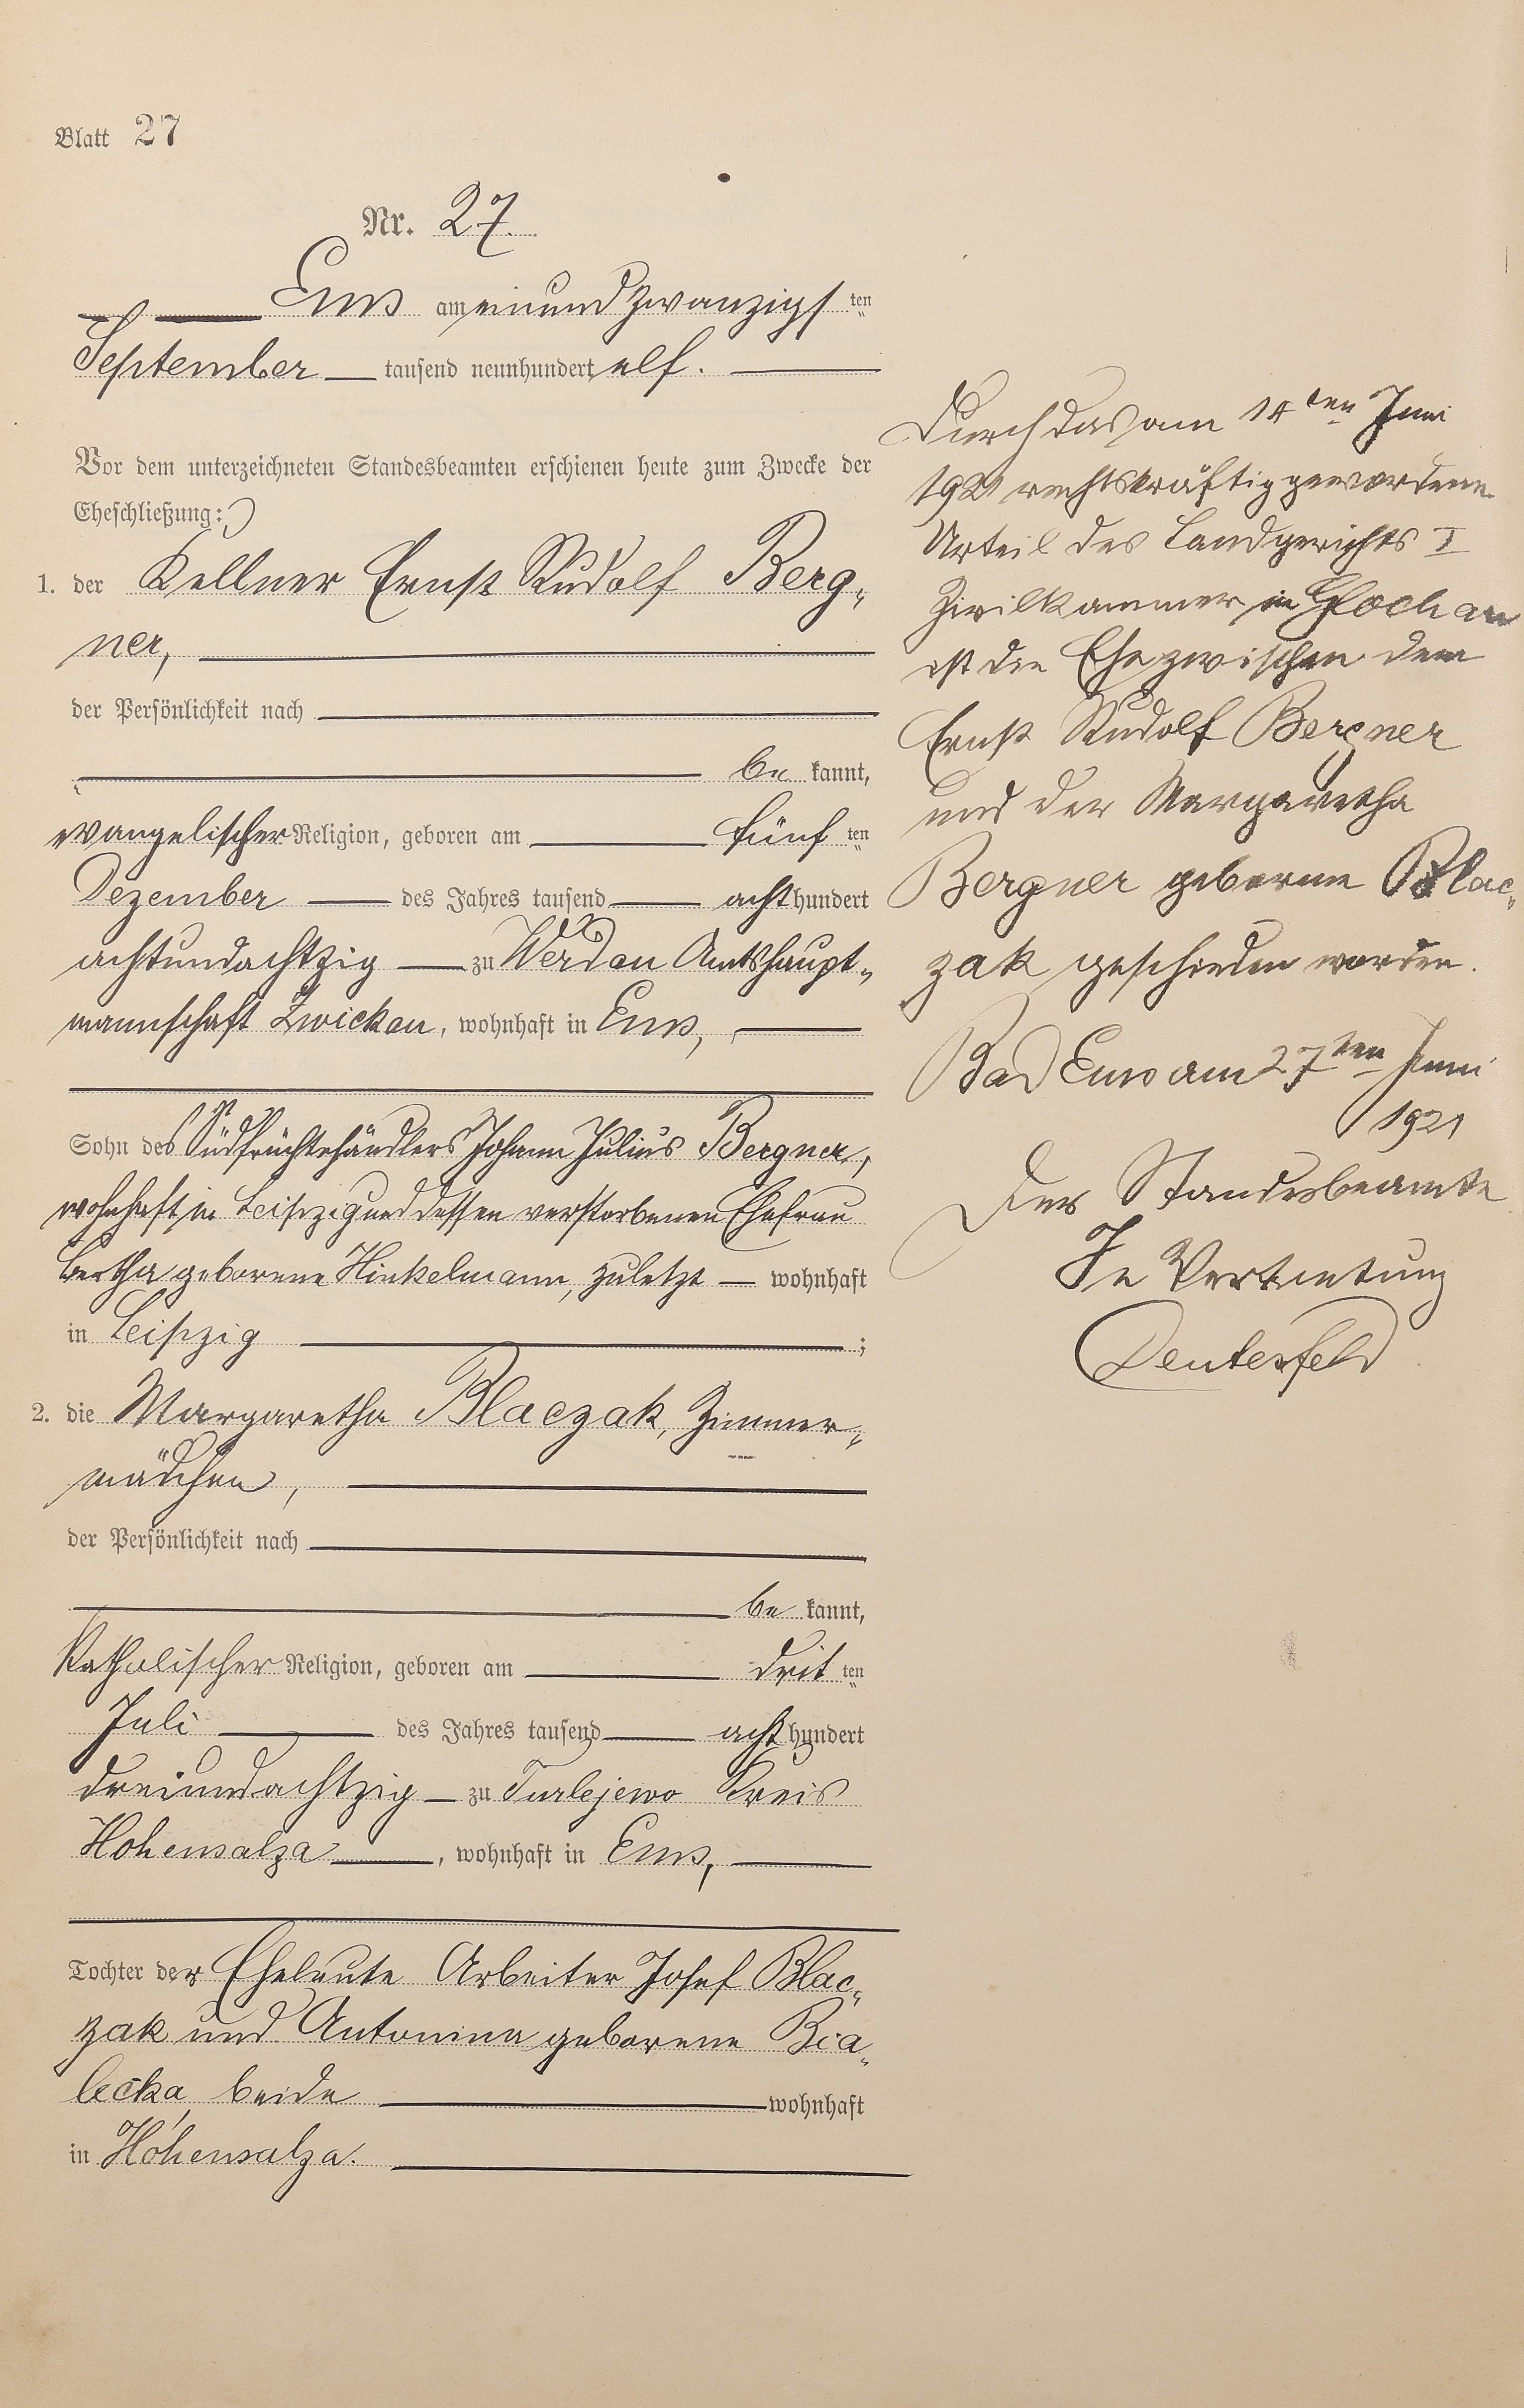 Blatt 27
Nr. 27.
Ems am einundzwanzigsten
September tausend neunhundert elf.
Vor dem unterzeichneten Standesbeamten erschienen heute zum Zwecke der
Eheschließung:
1. der Kellner Ernst Rudolf Berg-
ner,
der Persönlichkeit nach
be kannt,
evangelischer Religion, geboren am fünf ten
Dezember des Jahres tausend acht hundert
achtundachtzig zu Werdau Amtshaupt-
mannschaft Zwickau, wohnhaft in Ems,
Sohn des Südfrüchtehändlers Johann Julius Bergner,
wohnhaft in Leipzig und dessen verstorbenen Ehefrau
Bertha geborene Hinkelmann, zuletzt wohnhaft
in Leipzig ;
2. die Margaretha Blaczak, Zimmer-
mädchen,
der Persönlichkeit nach
be kannt,
katholischer Religion, geboren am drit ten
Juli des Jahres tausend acht hundert
dreiundachtzig zu Turlejewo Kreis
Hohensalza, wohnhaft in Ems,
Tochter der Eheleute Arbeiter Josef Blac-
zak und Antonina geborene Bia-
lecka, beide wohnhaft
in Hohensalza.
Durch das am 14ten Juni
1921 rechtskräftig gewordene
Urteil des Landgerichts I
Zivilkammer in
ist die Ehe zwischen dem
Ernst Rudolf Bergner
und der Margaretha
Bergner geborene Blac-
zak geschieden worden.
Bad Ems am 27ten Juni
1921
Der Standesbeamte
In Vertretung